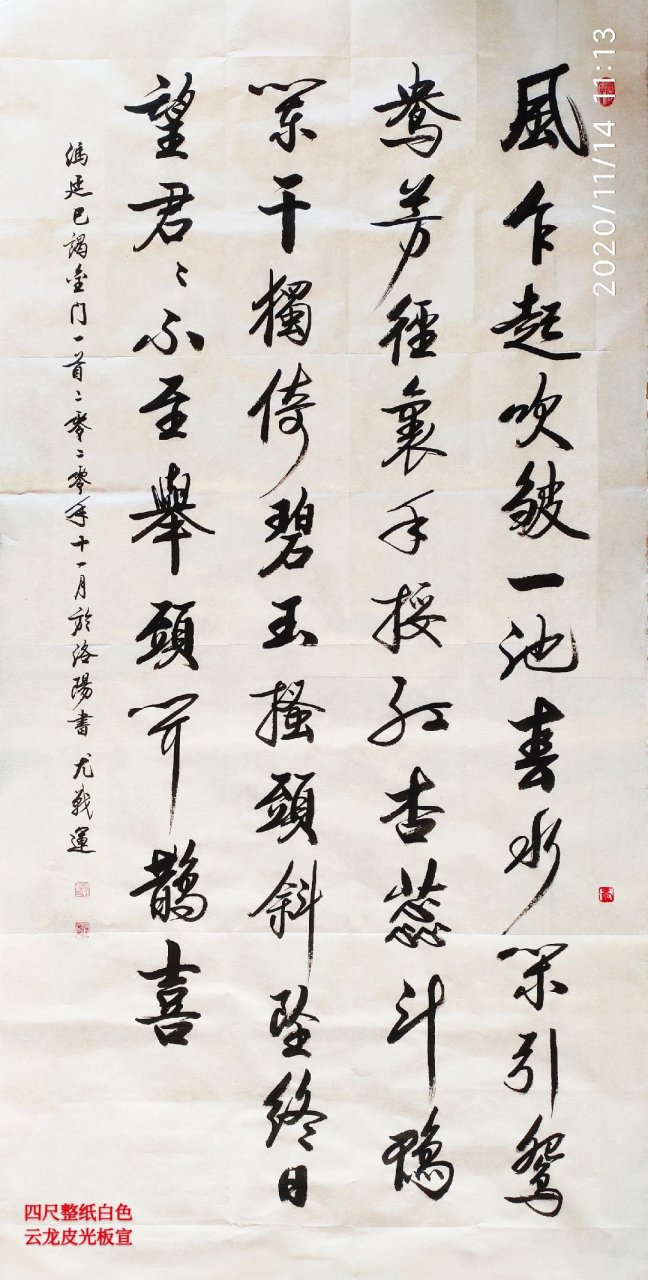 風乍起吹皺一池春水閑引鴛
鴦芳徑裏手挼紅杏蕊斗鴨
闌干獨倚碧玉搔頭斜墜終日
望君〻不至舉頭聞鵲喜
馮延巳謁金门一首二零二零年十一月於洛陽書 尤戰運
2020/11/14 11:13
四尺整纸白色
云龙皮光板宣